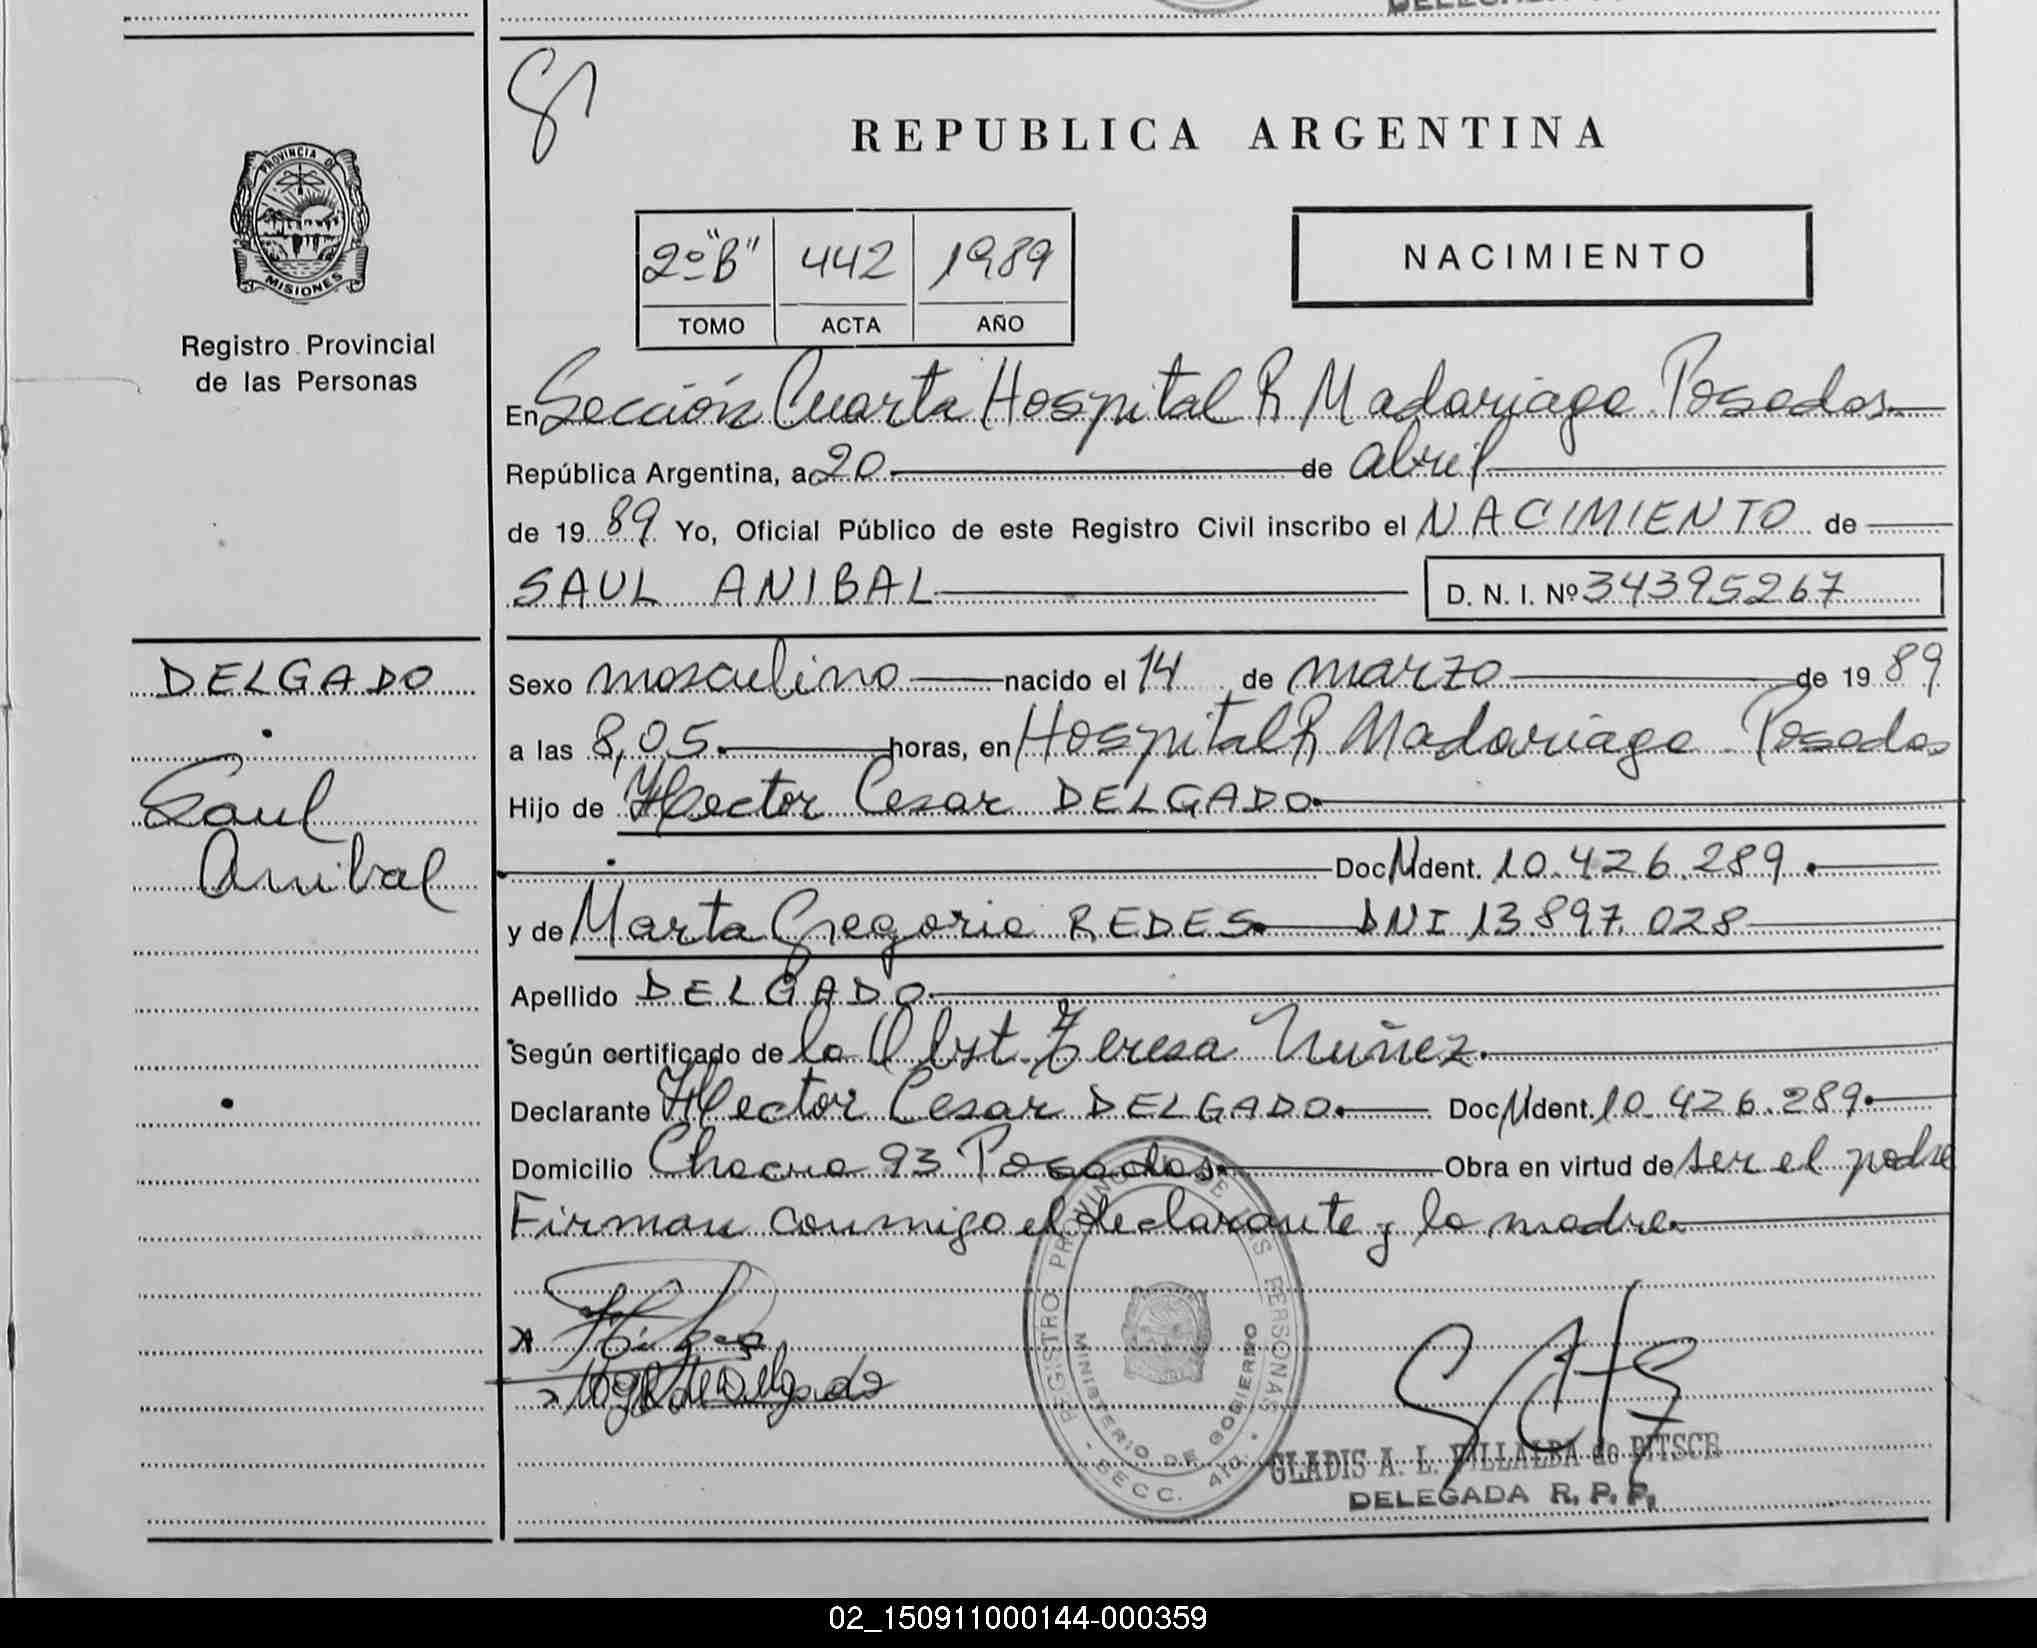 REPUBLICA ARGENTINA
PROVINCIA DE
MISIONES
Registro Provincial
de las Personas
2º "B" 442 1989
TOMO ACTA AÑO
NACIMIENTO
En Sección Cuarta Hospital R Madariaga Posadas
República Argentina, a 20 de abril
de 19 89 Yo, Oficial Público de este Registro Civil inscribo el NACIMIENTO de
SAUL ANIBAL D. N. I. Nº 34395267
DELGADO
Saul
Anibal
Sexo masculino nacido el 14 de marzo de 19 89
a las 8,05 horas, en Hospital R Madariaga Posadas
Hijo de Hector Cesar DELGADO
Doc. Ident. 10.426.289
y de Marta Gregoria REDES DNI 13.897.028
Apellido DELGADO
Según certificado de la Obst. Teresa Nuñez
Declarante Hector Cesar DELGADO Doc. Ident. 10.426.289
Domicilio Chacra 93 Posadas Obra en virtud de ser el padre
Firman conmigo el declarante y la madre
REGISTRO PROVINCIAL DE LAS PERSONAS
MINISTERIO DE GOBIERNO
SECC. 4ta.
de Delgado
GLADIS A. L. VILLALBA de PITSCH
DELEGADA R. P. P.
02_150911000144-000359